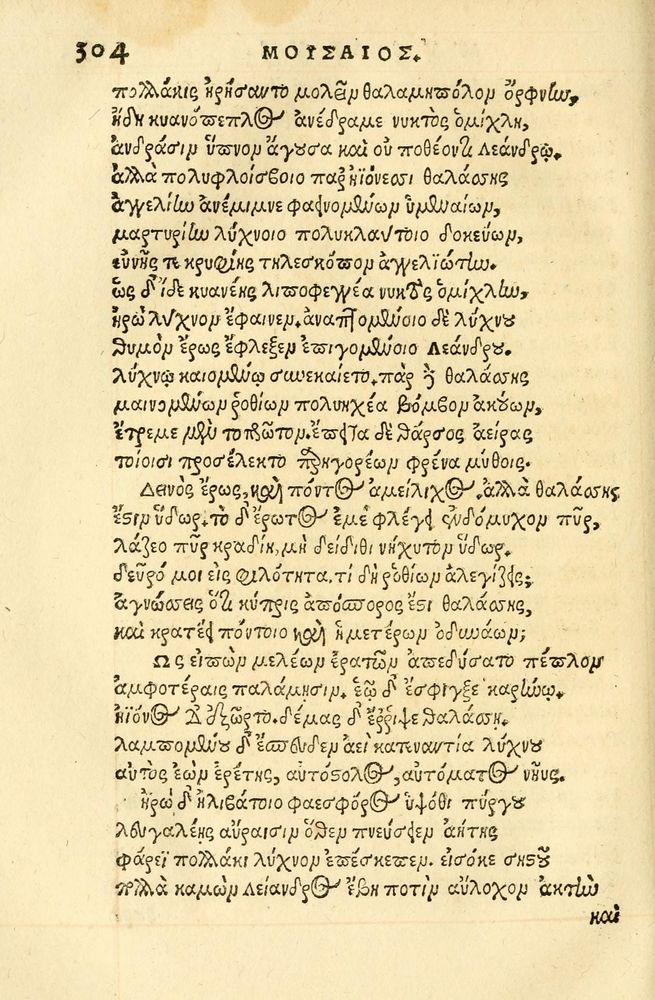 304 ΜΟΥΣΑΙΟΣ.
πολλάκις ἠρήσαντο μολεῖν θαλαμηπόλον ὄρφνην,
ἤδη κυανόπεπλος ἀνέδραμε νυκτὸς ὁμίχλη,
ἀνδράσιν ὕπνον ἄγουσα καὶ οὐ ποθέοντι Λεάνδρῳ.
ἀλλὰ πολυφλοίσβοιο παρ' ἠϊόνεσσι θαλάσσης
ἀγγελίην ἀνέμιμνε φαεινομένων ὑμεναίων,
μαρτυρίην λύχνοιο πολυκλαύτοιο δοκεύων,
εὐνῆς τε κρυφίης τηλεσκόπον ἀγγελϊώτην.
ὡς δ' ἴδε κυανέης λιποφεγγέα νυκτὸς ὁμίχλην,
ἡρὼ λύχνον ἔφαινεν. ἀναπτομένοιο δὲ λύχνου
θυμὸν ἔρως ἔφλεξεν ἐπειγομένοιο Λεάνδρου.
λύχνῳ καιομένῳ συνεκαίετο. πὰρ δὲ θαλάσσης
μαινομένων ῥοθίων πολυηχέα βόμβον ἀκούων,
ἔτρεμε μὲν τοπρῶτον. ἔπειτα δὲ θάρσος ἀείρας
τοίοισι προσέλεκτο παρηγορέων φρένα μύθοις.
Δεινὸς ἔρως, καὶ πόντος ἀμείλιχος. ἀλλὰ θαλάσσης
ἔστιν ὕδωρ. τὸ δ' ἔρωτος ἐμὲ φλέγει ἐνδόμυχον πῦρ,
λάζεο πῦρ κραδίη, μὴ δείδιθι νήχυτον ὕδωρ.
δεῦρό μοι εἰς φιλότητα. τί δὴ ῥοθίων ἀλεγίζεις;
ἀγνώσσεις ὅτι κύπρις ἀπόσπορος ἐστὶ θαλάσσης,
καὶ κρατέει πόντοιο καὶ ἡμετέρων ὀδυνάων;
Ως εἰπὼν μελέων ἐρατῶν ἀπεδύσατο πέπλον
ἀμφοτέραις παλάμησιν. ἑῷ δ' ἔσφιγξε καρήνῳ.
ἠϊόνος δ' ἐξῶρτο. δέμας δ' ἔρριψε θαλάσσῃ.
λαμπομένου δ' ἔσπευδεν ἀεὶ κατεναντία λύχνου
αὐτὸς ἐὼν ἐρέτης, αὐτόστολος, αὐτόματος νηῦς.
ἡρὼ δ' ἠλιβάτοιο φαεσφόρος ὑψόθι πύργου
λευγαλέης αὔραισιν ὅθεν πνεύσειεν ἀήτης
φάρεϊ πολλάκι λύχνον ἐπέσκεπεν. εἰσόκε σηστοῦ
πολλὰ καμὼν Λείανδρος ἔβη ποτὶν αὔλοχον ἀκτὴν
καὶ